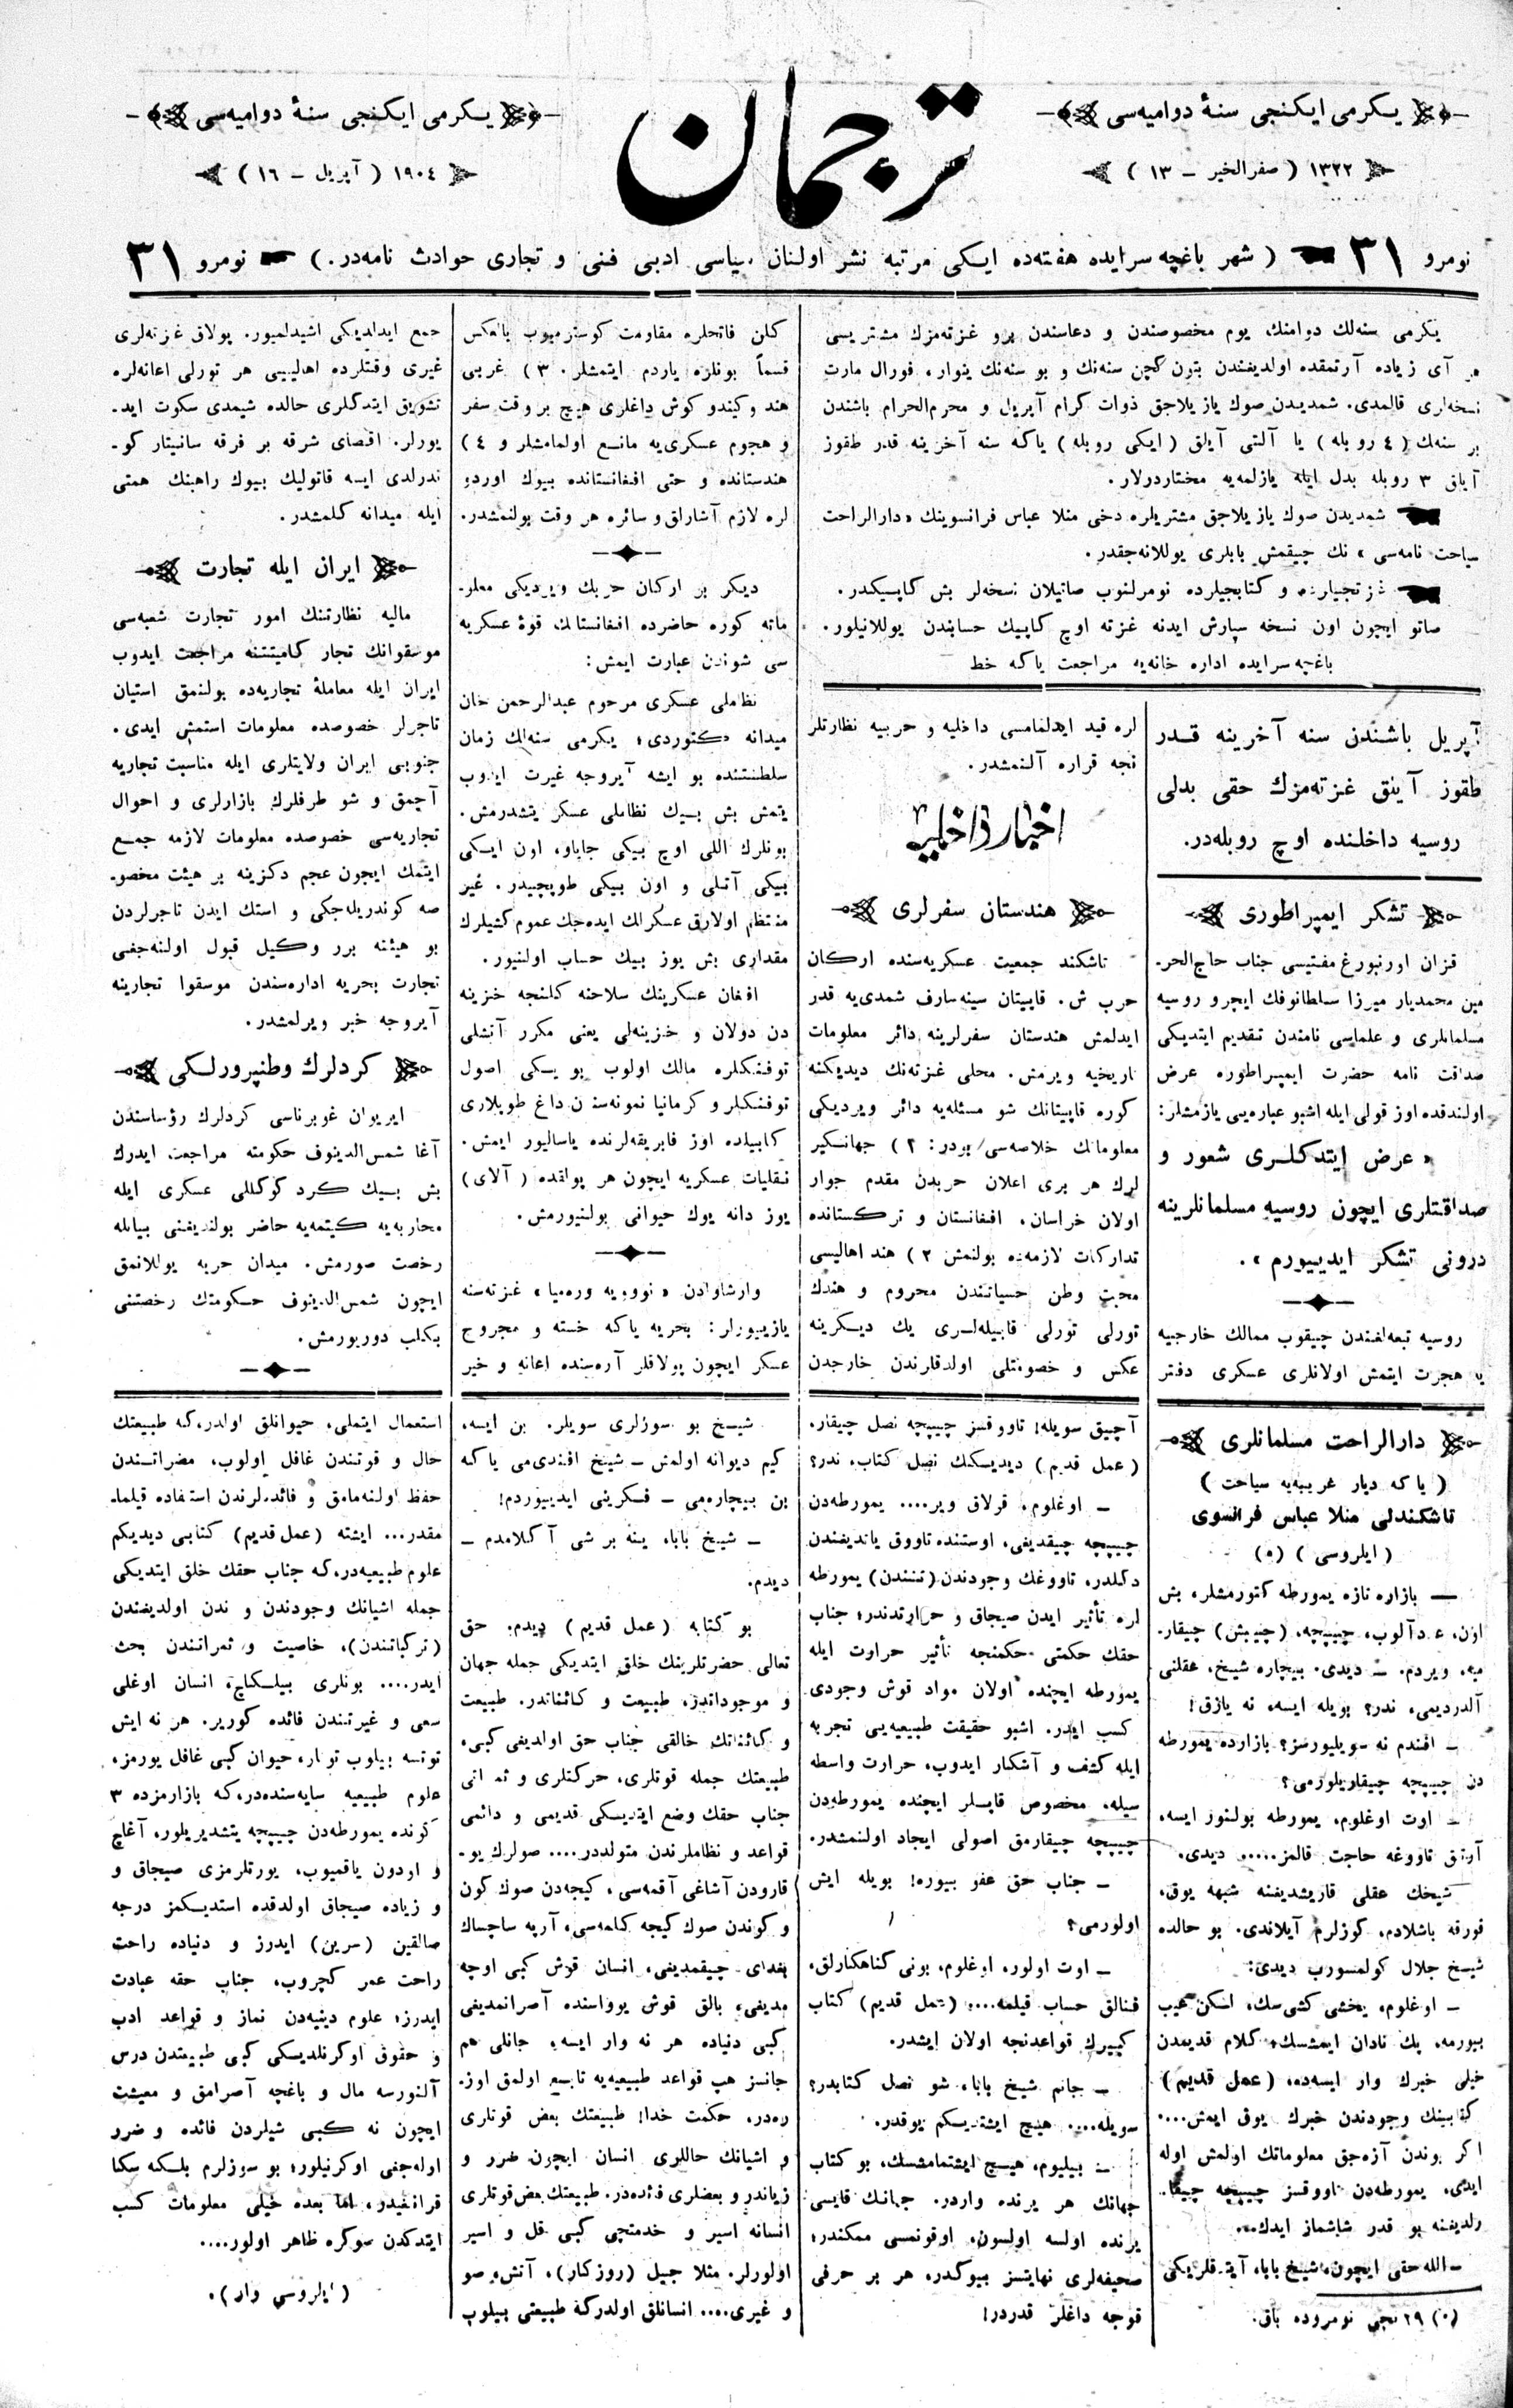 یكرمی ایكنجی سنۀ دوامیه‌سی
ترجمان
یكرمی ایكنجی سنۀ دوامیه‌سی
١٣٢٢ ( صفرالخیر – ١٣ )
١٩٠٤ ( آپریل – ١٦ )
نومرو ٣١ ( شهر باغچه سرایده هفته‌ده ایكی مرتبه نشر اولنان سیاسی ادبی فنی و تجاری حوادث نامه‌در. ) نومرو ٣١
یكرمی سنه‌لك دوامنك، یوم مخصوصندن و دعاسندن برو غزته‌مزك مشتریسی
هر آی زیاده آرتمقده اولدیغندن بتون كچن سنه‌نك و بو سنه‌نك ینوار، فورال مارت
نسخه‌لری قالمدی. شمدیدن صوك یازیلاجق ذوات كرام آپریل و محرم‌الحرام باشندن
بر سنه‌لك ( ٤ روبله ) یا آلتی آیلق ( ایكی روبله ) یاكه سنه آخرینه قدر طقوز
آیلق ٣ روبله بدل ایله یازلمه‌یه مختاردرلار.
شمدیدن صوك یازیلاجق مشتریلره دخی منلا عباس فرانسوینك «دارالراحت
سیاحت نامه‌سی» نك چیقمش بابلری یوللانه‌جقدر.
غزتجیلرده و كتابجیلرده نومرلنوب صاتیلان نسخه‌لر بش كاپیكدر.
صاتو ایچون اون نسخه سپارش ایدنه غزته اوچ كاپیك حسابندن یوللانیلور.
باغچه سرایده اداره خانه‌یه مراجعت یاكه خط
آپریل باشندن سنه آخرینه قدر
طقوز آیلق غزته‌مزك حقی بدلی
روسیه داخلنده اوچ روبله‌در.
تشكر ایمپراطوری
قزان اورنبورغ مفتیسی جناب حاج‌الحر-
مین محمدیار میرزا سلطانوفك ایچرو روسیه
مسلمانلری و علماسی نامندن تقدیم ایتدیكی
صداقت نامه حضرت ایمپراطوره عرض
اولندقده اوز قولی ایله اشبو عباره‌یی یازمشلر:
« عرض ایتدكلری شعور و
صداقتلری ایچون روسیه مسلمانلرینه
درونی تشكر ایدییورم ».
روسیه تبعه‌لغندن چیقوب ممالك خارجیه
یه هجرت ایتمش اولانلری عسكری دفتر
لره قید ایدلمامسی داخلیه و حربیه نظارتلر
نجه قراره آلنمشدر.
اخبار داخلیه
هندستان سفرلری
تاشكند جمعیت عسكریه‌سنده اركان
حرب ش. قاپیتان سینه‌سارف شمدی‌یه قدر
ایدلمش هندستان سفرلرینه دائر معلومات
تاریخیه ویرمش. محلی غزته‌نك دیدیكنه
كوره قاپیتانك شو مسئله‌یه دائر ویردیكی
معلوماتك خلاصه‌سی بودر: ١) جهانكیر
لرك هر بری اعلان حربدن مقدم جوار
اولان خراسان، افغانستان و تركستانده
تداركات لازمه‌ده بولنمش ٢) هند اهالیسی
محبت وطن حسیاتندن محروم و هندك
تورلی تورلی قابیله‌لری یك دیكرینه
عكس و خصومتلی اولدقارندن خارجدن
كلن فاتحلره مقاومت كوسترمیوب بالعكس
قسماً بونلره یاردم ایتمشلر. ٣) غربی
هند وكیندو كوش داغلری هیچ بر وقت سفر
و هجوم عسكری‌یه مانع اولمامشلر و ٤)
هندستانده و حتی افغانستانده بیوك اوردو
لره لازم آشاراق و سائره هر وقت بولنمشدر.
دیكر بر اركان حربك ویردیكی معلو-
ماته كوره حاضرده افغانستانك قوۀ عسكریه
سی شوندن عبارت ایمش:
نظاملی عسكری مرحوم عبدالرحمن خان
میدانه كتوردی؛ یكرمی سنه‌لك زمان
سلطنتنده بو ایشه آیروجه غیرت ایدوب
یتمش بش بیك نظاملی عسكر یتشدرمش.
بونلرك اللی اوچ بیكی جایاو، اون ایكی
بیكی آتلی و اون بیكی طوپچیدر. غیر
منتظم اولارق عسكرلك ایده‌جك عموم كشیلرك
مقداری بش یوز بیك حساب اولنیور.
افغان عسكرینك سلاحنه كلنجه خزینه
دن دولان و خزینه‌لی یعنی مكرر آتشلی
توفنكلره مالك اولوب بو یسكی اصول
توفنكلر و كرمانیا نمونه‌سندن داغ طوپلاری
كابیلده اوز فابریقه‌لرنده یاسالیور ایمش.
نقلیات عسكریه ایچون هر پولقده ( آلای )
یوز دانه یوك حیوانی بولنیورمش.
وارشاوادن « نوویه وره‌میا » غزته‌سنه
یازییورلر: بحریه یاكه خسته و مجروح
عسكر ایچون پولاقلر آره‌سنده اعانه و خیر
جمع ایدلدیكی اشیدلمیور. پولاق غزته‌لری
غیری وقتلرده اهالییی هر تورلی اعانه‌لره
تشویق ایتدكلری حالده شیمدی سكوت اید-
یورلر. اقصای شرقه بر فرقه سانیتار كو-
ندرلدی ایسه قاتولیك بیوك راهبنك همتی
ایله میدانه كلمشدر.
ایران ایله تجارت
مالیه نظارتنك امور تجارت شعبه‌سی
موسقوانك تجار كامیتتنه مراجعت ایدوب
ایران ایله معاملۀ تجاریه‌ده بولنمق استیان
تاجرلر خصوصده معلومات استمش ایدی.
جنوبی ایران ولایتلری ایله مناسبت تجاریه
آچمق و شو طرفلرك بازارلری و احوال
تجاریه‌سی خصوصده معلومات لازمه جمع
ایتمك ایچون عجم دكزینه بر هیئت مخصو-
صه كوندریله‌جكی و استك ایدن تاجرلردن
بو هیئته برر وكیل قبول اولنه‌جغی
تجارت بحریه اداره‌سندن موسقوا تجارینه
آیروجه خبر ویرلمشدر.
كردلرك وطنپرورلكی
ایریوان غوبرناسی كردلرك رؤساسندن
آغا شمس‌الدینوف حكومته مراجعت ایدرك
بش بیك كرد كوكللی عسكری ایله
محاربه‌یه كیتمه‌یه حاضر بولندیغنی بیانله
رخصت صورمش. میدان حربه یوللانمق
ایچون شمس‌الدینوف حكومتك رخصتنی
بكلب دوریورمش.
دارالراحت مسلمانلری
( یاكه دیار غریبه‌یه سیاحت )
تاشكندلی منلا عباس فرانسوی
( ایلروسی ) (٠)
— بازاره تازه یمورطه كتورمشلر، بش
اون، عدآلوب، چیپچه، (چیبش) چیقار-
میه، ویردم. – دیدی. بیچاره شیخ، عقلنی
آلدردیمی، ندر؟ بویله ایسه، نه یازق!
– افندم نه سویلیورسز؟ بازارده یمورطه
دن چیپچه چیقاریلورمی؟
– اوت اوغلوم، یمورطه بولنور ایسه،
آرتق تاووغه حاجت قالمز..... دیدی.
شیخك عقلی قاریشدیغنه شبهه یوق،
قورقه باشلادم، كوزلرم آیلاندی. بو حالده
شیخ جلال كولمسورب دیدی:
– اوغلوم، یخشی كشی‌سك، لسكن عیب
بیورمه، پك نادان ایمشسك، كلام قدیمدن
خیلی خبرك وار ایسه‌ده، (عمل قدیم)
كتابینك وجودندن خبرك یوق ایمش....
اكر بوندن آزه‌جق معلوماتك اولمش اوله
ایدی، یمورطه‌دن تاووقسز چیپچه چیقا-
رلدیغنه بو قدر شاشماز ایدك...
– الله حقی ایچون، شیخ بابا،
(٠) ٢٩ نجی نومروده باق.
آچیق سویله! تاووقسز چیپچه نصل چیقار،
(عمل قدیم) دیدیسكك نصل كتاب، ندر؟
– اوغلوم، قرلاق ویر.... یمورطه‌دن
چیپچه چیقدیغی، اوستنده تاووق یاتدیغندن
دكلدر، تاووغك وجودندن (تنندن) یمورطه
لره تأثیر ایدن صیجاق و حرارتدندر؛ جناب
حقك حكمتی حكمنجه تأثیر حراوت ایله
یمورطه ایچنده اولان مواد قوش وجودی
كسب ایدر. اشبو حقیقت طبیعیه‌یی تجربه
ایله كشف و آشكار ایدوب، حرارت واسطه
سیله، مخصوص قاپلر ایچنده یمورطه‌دن
چیپچه چیقارمق اصولی ایجاد اولنمشدر.
– جناب حق عفو بیوره! بویله ایش
اولورمی؟
– اوت اولور، اوغلوم، بونی كناهكارلق،
فنالق حساب قیلمه.... (عمل قدیم) كتاب
كبیرك قواعدنجه اولان ایشدر.
– جانم شیخ بابا، شو نصل كتابدر؟
سویله.... هیچ ایشتدیسكم یوقدر.
– بیلیوم، هیچ ایشتمامشسك، بو كتاب
جهانك هر یرنده واردر. جهانك قایسی
یرنده اولسه اولسون، اوقونمسی ممكندر؛
صحیفه‌لری نهایتسز بیوكدر، هر بر حرفی
قوجه داغلر قدردر!
شیخ بو سوزلری سویلر. بن ایسه،
كیم دیوانه اولمش – شیخ افندی‌می یاكه
بن بیچاره‌می – فكرینی ایدییوردم!
– شیخ بابا، ینه بر شی آكلامدم –
دیدم.
بو كتابه (عمل قدیم) دیدم. حق
تعالی حضرتلرینك خلق ایتدیكی جمله جهان
و موجوداتدر، طبیعت و كائناتدر. طبیعت
و كائناتك خالقی جناب حق اولدیغی كبی،
طبیعتك جمله قوتلری، حركتلری و ثمراتی
جناب حقك وضع ایتدیسكی قدیمی و دائمی
قواعد و نظاملرندن متولددر.... صولرك یو-
قارودن آشاغی آقمه‌سی، كیجه‌دن صوك كون
و كوندن صوك كیجه كلمه‌سی، آرپه ساچساك
بغدای چیقمدیغی، انسان قوش كبی اوچه
مدیغی، بالق قوش یوواسنده آصرانمدیغی
كبی دنیاده هر نه وار ایسه، جانلی هم
جانسز هپ قواعد طبیعیه‌یه تابع اولمق اوز-
ره‌در. حكمت خدا! طبیعتك بعض قوتلری
و اشیانك حاللری انسان ایچون ضرر و
زیاندر و بعضلری فائده‌در. طبیعتك بعض قوتلری
انسانه اسیر و خدمتچی كبی قل و اسیر
اولورلر. مثلا جیل (روزكار)، آتش، صو
و غیری.... انسانلق اولدركه طبیعتی بیلوب
استعمال ایتملی، حیوانلق اولدر،كه طبیعتك
حال و قوتندن غافل اولوب، مضراتندن
حفظ اولنه‌مامق و فائده‌لرندن استفاده قیلما-
مقدر... ایشته (عمل قدیم) كتابی دیدیكم
علوم طبیعیه‌در،كه جناب حقك خلق ایتدیكی
جمله اشیانك وجودندن و ندن اولدیغندن
(تركباتندن)، خاصیت و ثمراتندن بحث
ایدر.... بونلری بیلسكاچ، انسان اوغلی
سعی و غیرتندن فائده كوریر. هر نه ایش
توتسه بیلوب توتار، حیوان كبی غافل یورمز.
علوم طبیعیه سایه‌سنده‌در،كه بازارمزده ٣
كونده یمورطه‌دن چیپچه یتشدیریلور، آغاچ
و اودون یاقمیوب، یورتلرمزی صیجاق و
و زیاده صیجاق اولدقده استدیكمز درجه
صالقین (سرین) ایدرز و دنیاده راحت
راحت عمر كچروب، جناب حقه عبادت
ایدرز؛ علوم دینیه‌دن نماز و قواعد ادب
و حقوق اوكرنلدیسكی كبی طبیعتدن درس
آلنورسه مال و باغچه آصرامق و معیشت
ایچون نه كبی شیلردن فائده و ضرر
اوله‌جغی اوكرنیلور؛ بو سوزلرم بلكه سكا
قراغیدر، اما بعده خیلی معلومات كسب
ایتدكدن سوكره ظاهر اولور....
( ایلروسی وار ).